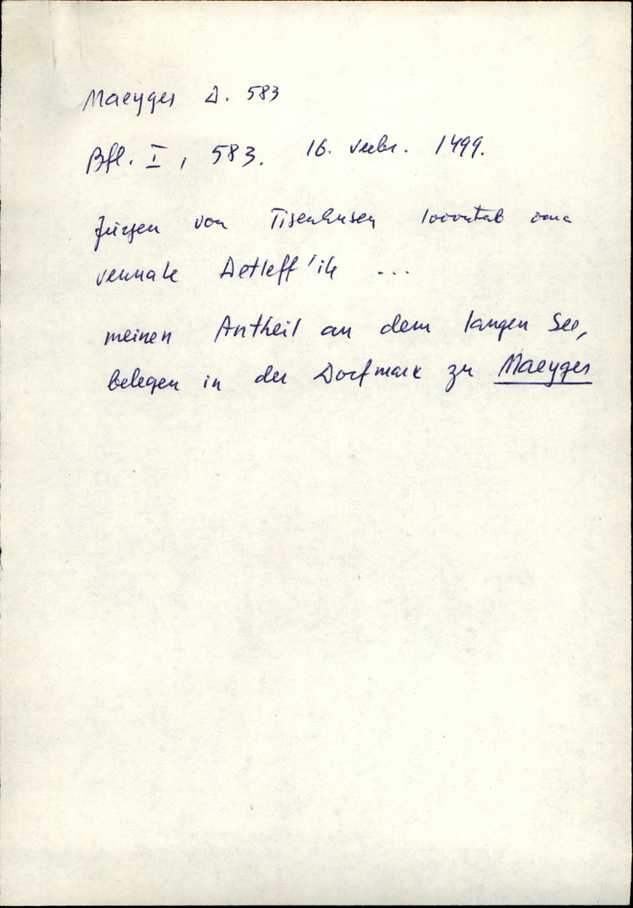 Maeyges D. 583
Bfl. I, 583. 16. veebr. 1499.
Jürgen von Tisenhusen loovutab oma
vennale Detleff'ile ...
meinen Antheil an dem langen See,
belegen in der Dorfmark zu Maeyges